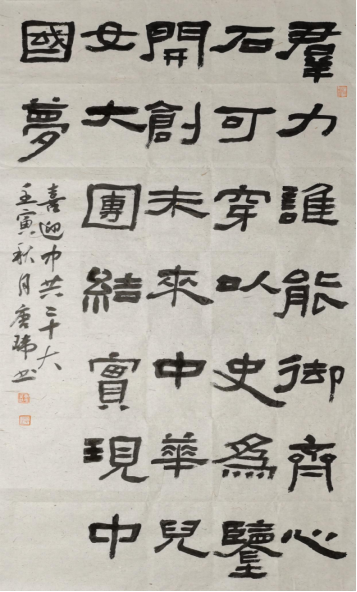 羣力誰能御齊心
石可穿以史爲鑒
開創未來中華兒
女大團結實現中
國夢
喜迎中共二十大
壬寅秋月唐书